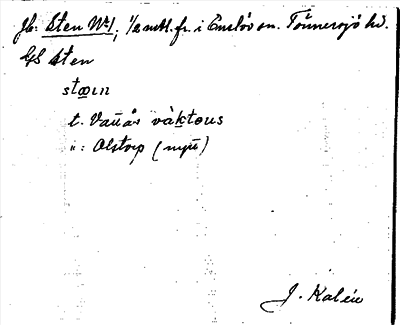 Jb: Sten Nr 1, 1/2 mtl. fr. i Enslöv sn. Tönnersjö hd.
G/S Sten
stœın
t. Vaūår vàktɵus
i: Alstorp (myū)
J. Kalén